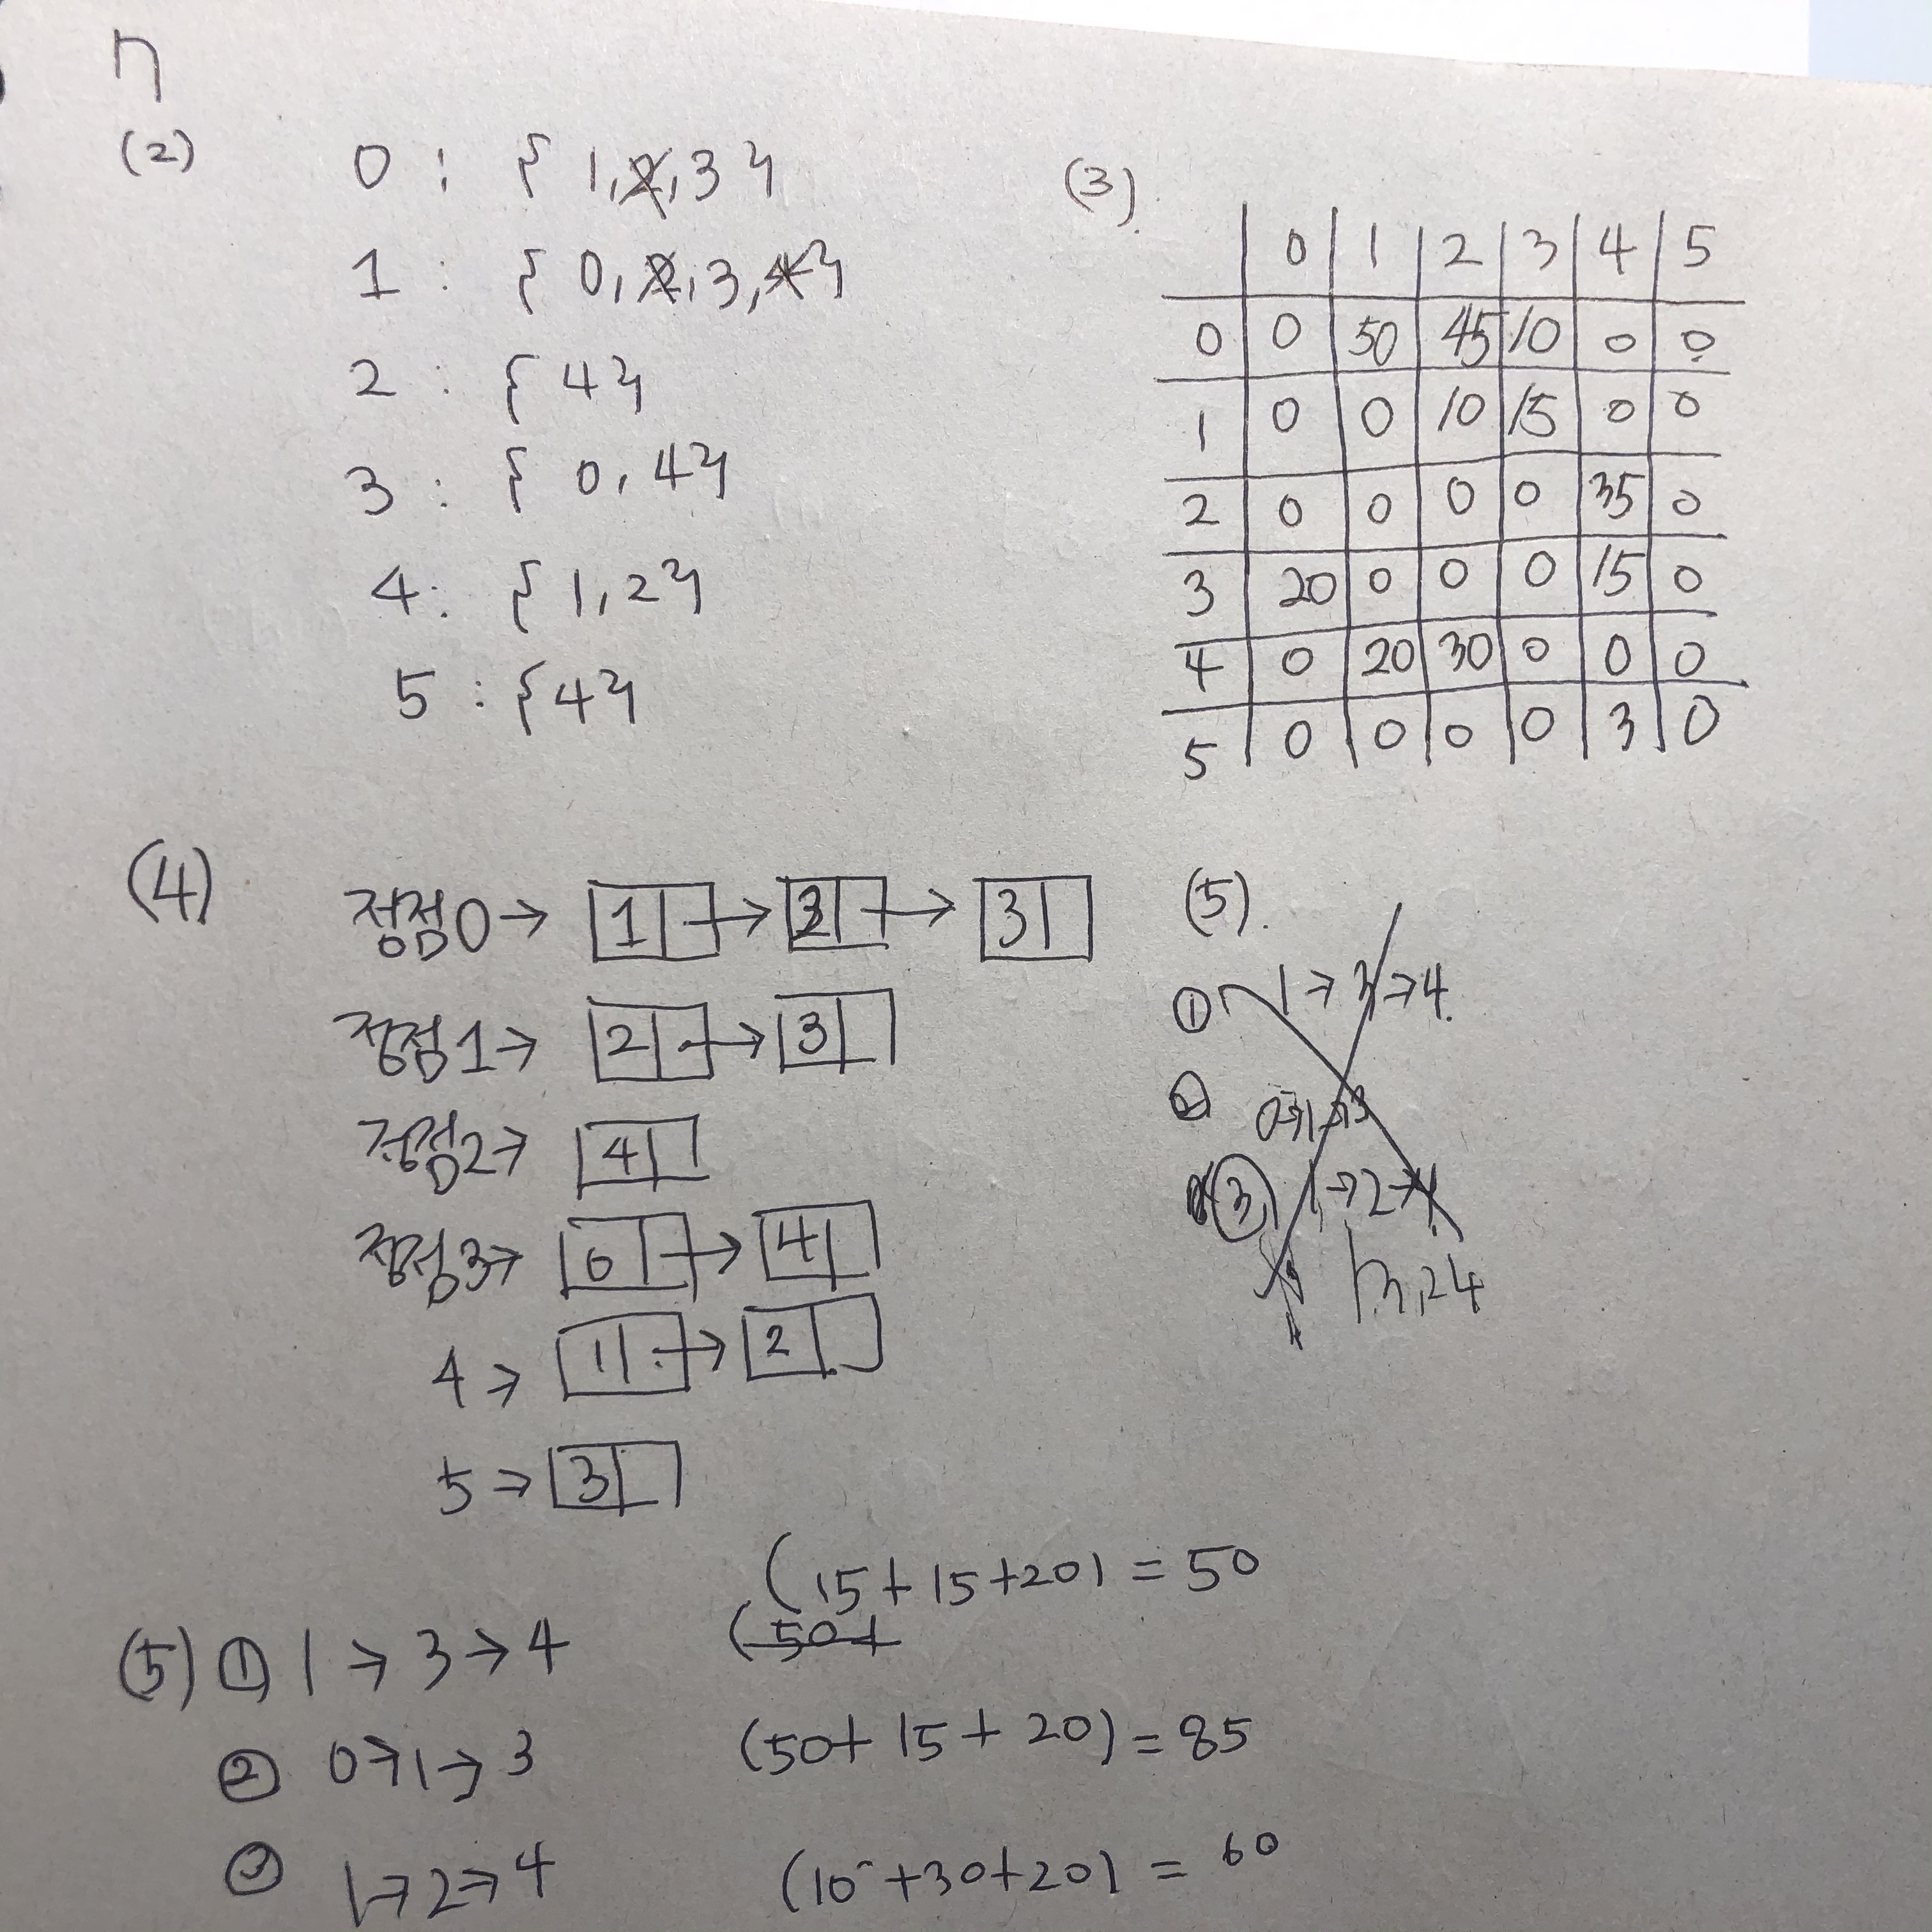 n
(2)
0 : { 1, 2, 3 }
1 : { 0, 2, 3, 4 }
2 : { 4 }
3 : { 0, 4 }
4 : { 1, 2 }
5 : { 4 }
(3).
0 1 2 3 4 5
0 0 50 45 10 0 0
1 0 0 10 15 0 0
2 0 0 0 0 35 0
3 20 0 0 0 15 0
4 0 20 30 0 0 0
5 0 0 0 0 3 0
(4)
정점0 → 1 → 2 → 3
정점1 → 2 → 3
정점2 → 4
정점3 → 0 → 4
4 → 1 → 2
5 → 3
(5).
① 1 → 3 → 4.
② 0 → 1 → 3
③ 1 → 2 → 4
(5) ① 1 → 3 → 4 (15 + 15 + 20) = 50
(50+
② 0 → 1 → 3 (50 + 15 + 20) = 85
③ 1 → 2 → 4 (10 + 30 + 20) = 60